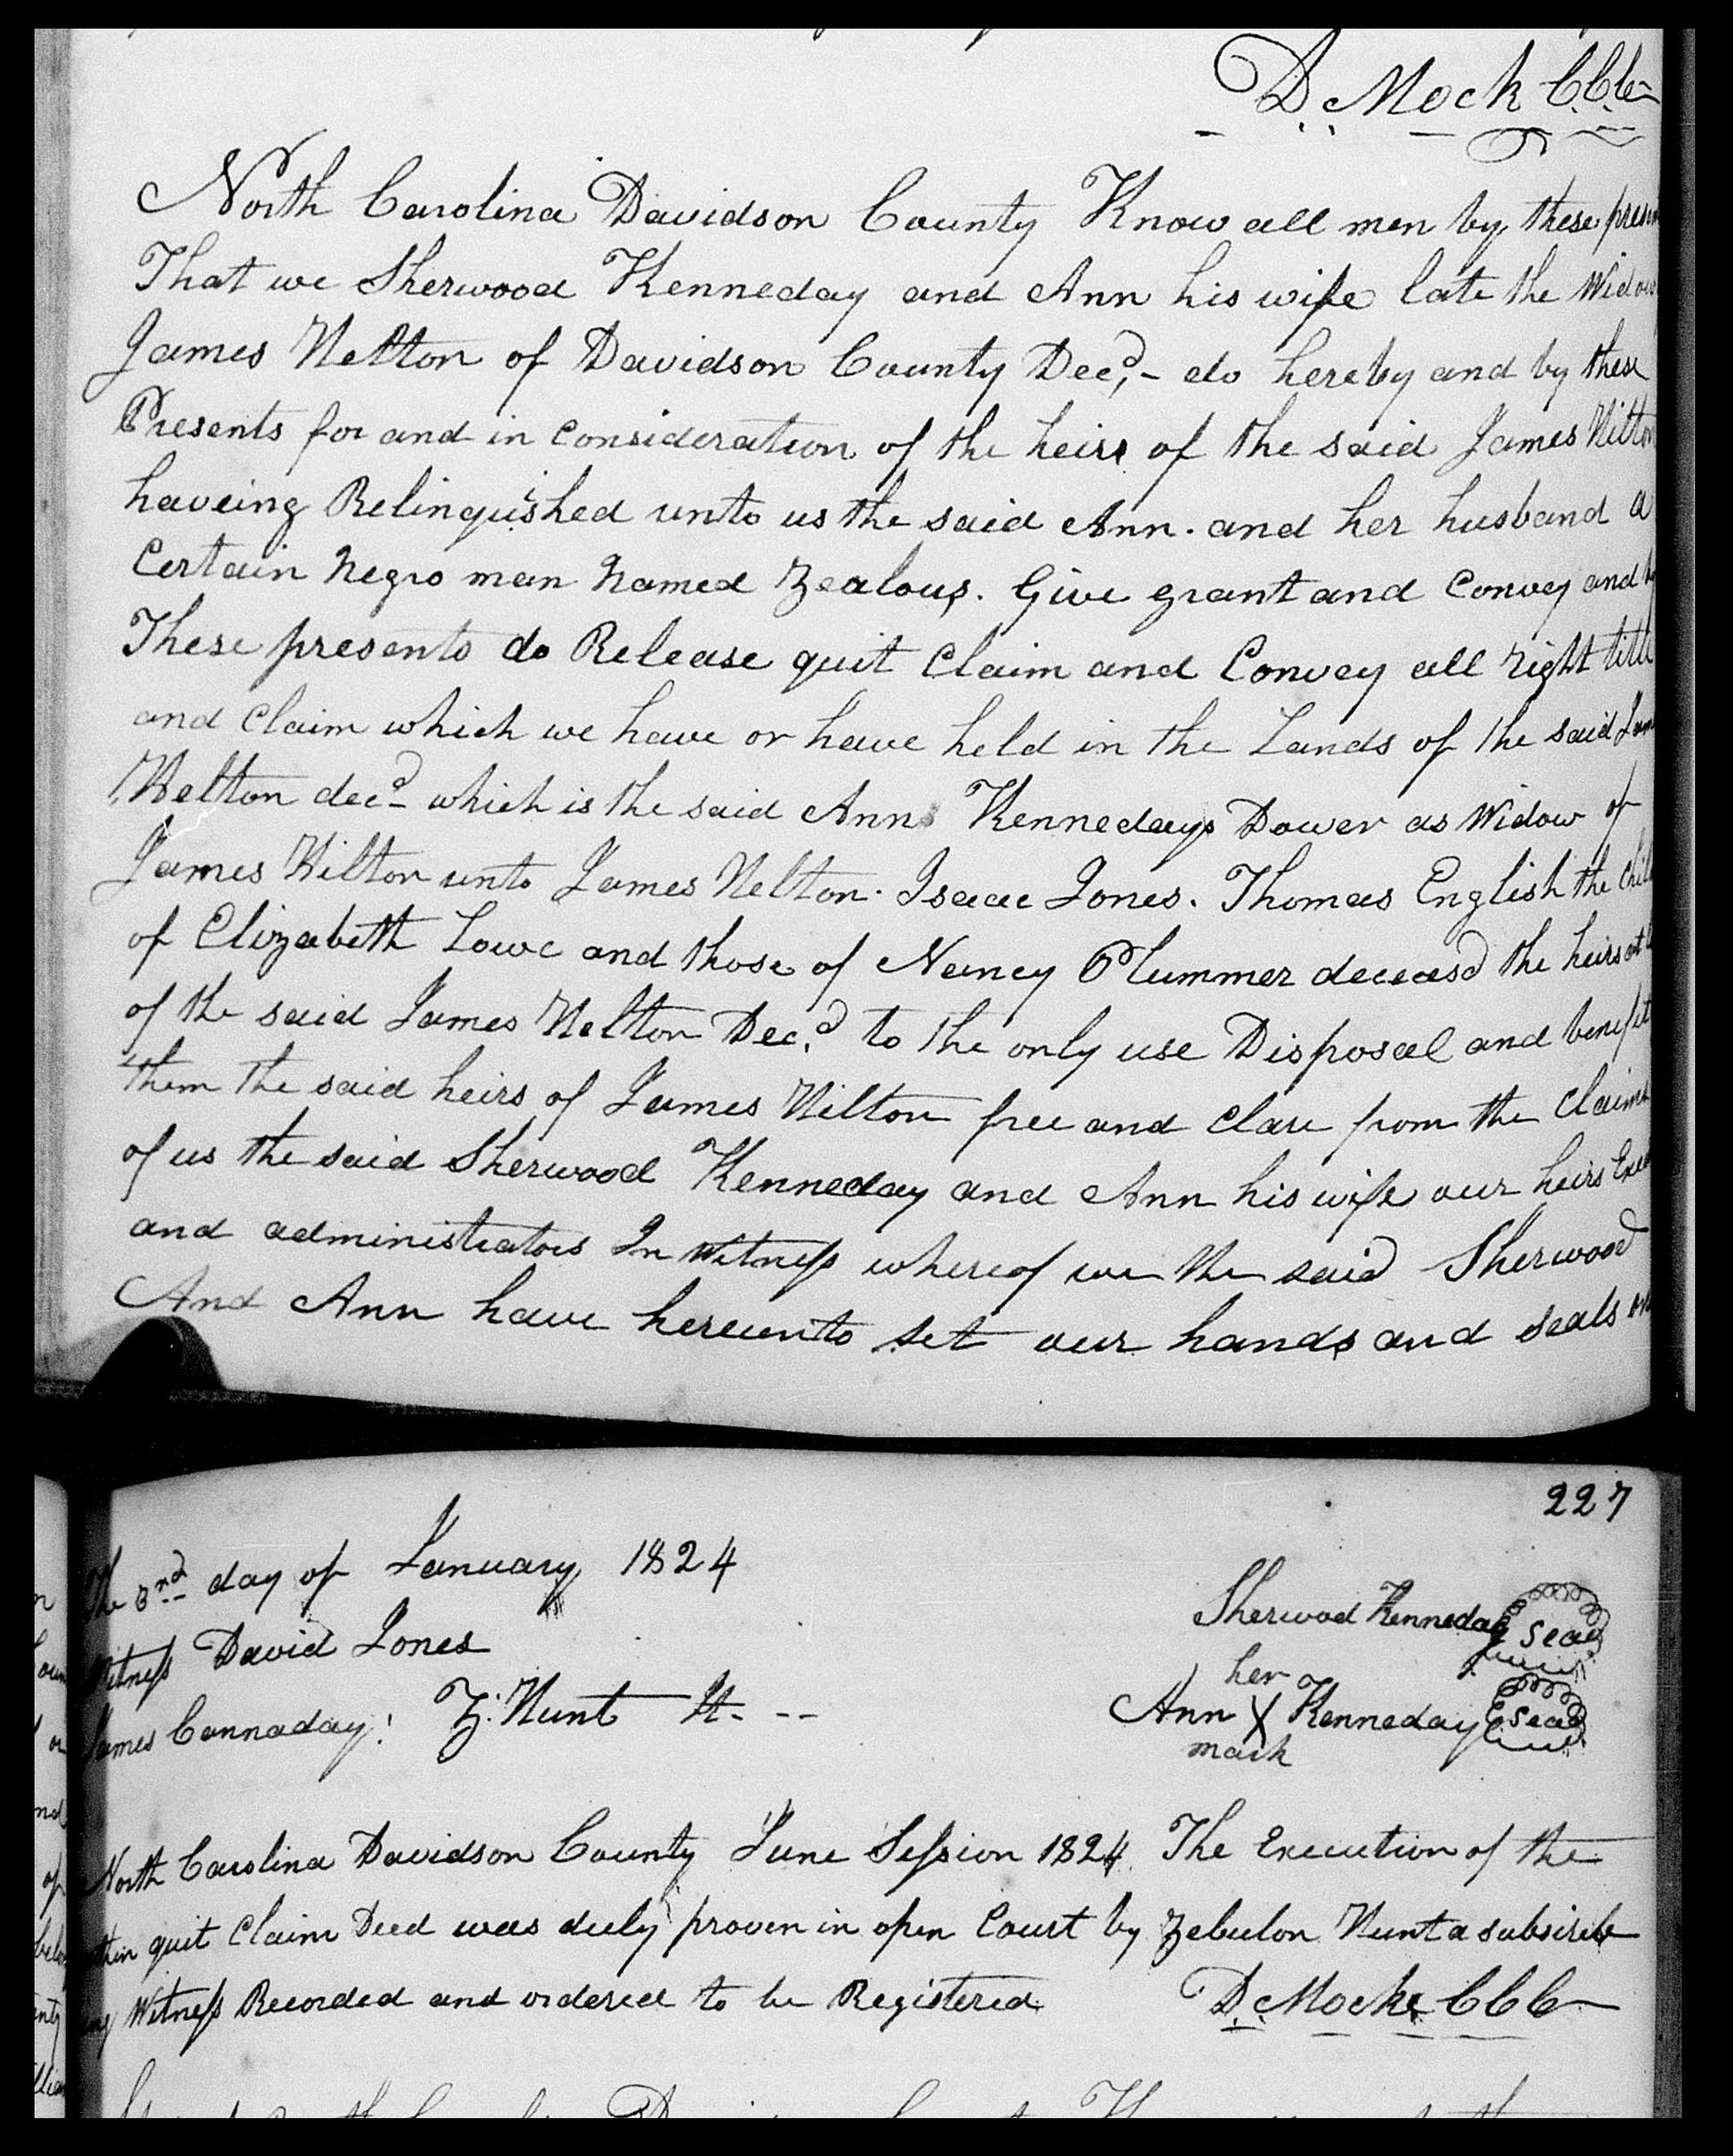 D. Mock C.C.C.
North Carolina Davidson County Know all men by these
That we Sherwood Kenneday and Ann his wife late the Widow
James Helton of Davidson County Decd,- do hereby and by these
Presents for and in Consideration of the heirs of the said James Hilton
haveing Relinquished unto us the said Ann. and her husband a
Certain Negro man Named Zealous. Give grant and Convey and by
These presents do Release quit Claim and Convey all right title
and Claim which we have or have held in the Lands of the said
Helton decd- which is the said Ann Kennedays Dower as Widow of
James Hilton unto James Helton. Isaac Jones. Thomas English the
of Elizabeth Lowe and those of Nancy Plummer deceasd the heirs at
of the said James Helton Decd. to the only use Disposal and benefit
them the said heirs of James Hilton free and Clare from the Claims
of us the said Sherwood Kenneday and Ann his wife our heirs
and administrators In Witness whereof we the said Sherwood
And Ann have hereunto set our hands and seals on
227
The 3rd day of January 1824
Witness David Jones
James Cannaday! Z. Hunt
Sherwood Kenneday Seal
her
Ann X Kenneday Seal
mark
North Carolina Davidson County June Session 1824 The Execution of the
within quit Claim Deed was duly proven in open Court by Zebulon Hunt a subscrib
ing Witness Recorded and ordered to be Registered D. Mock CCC